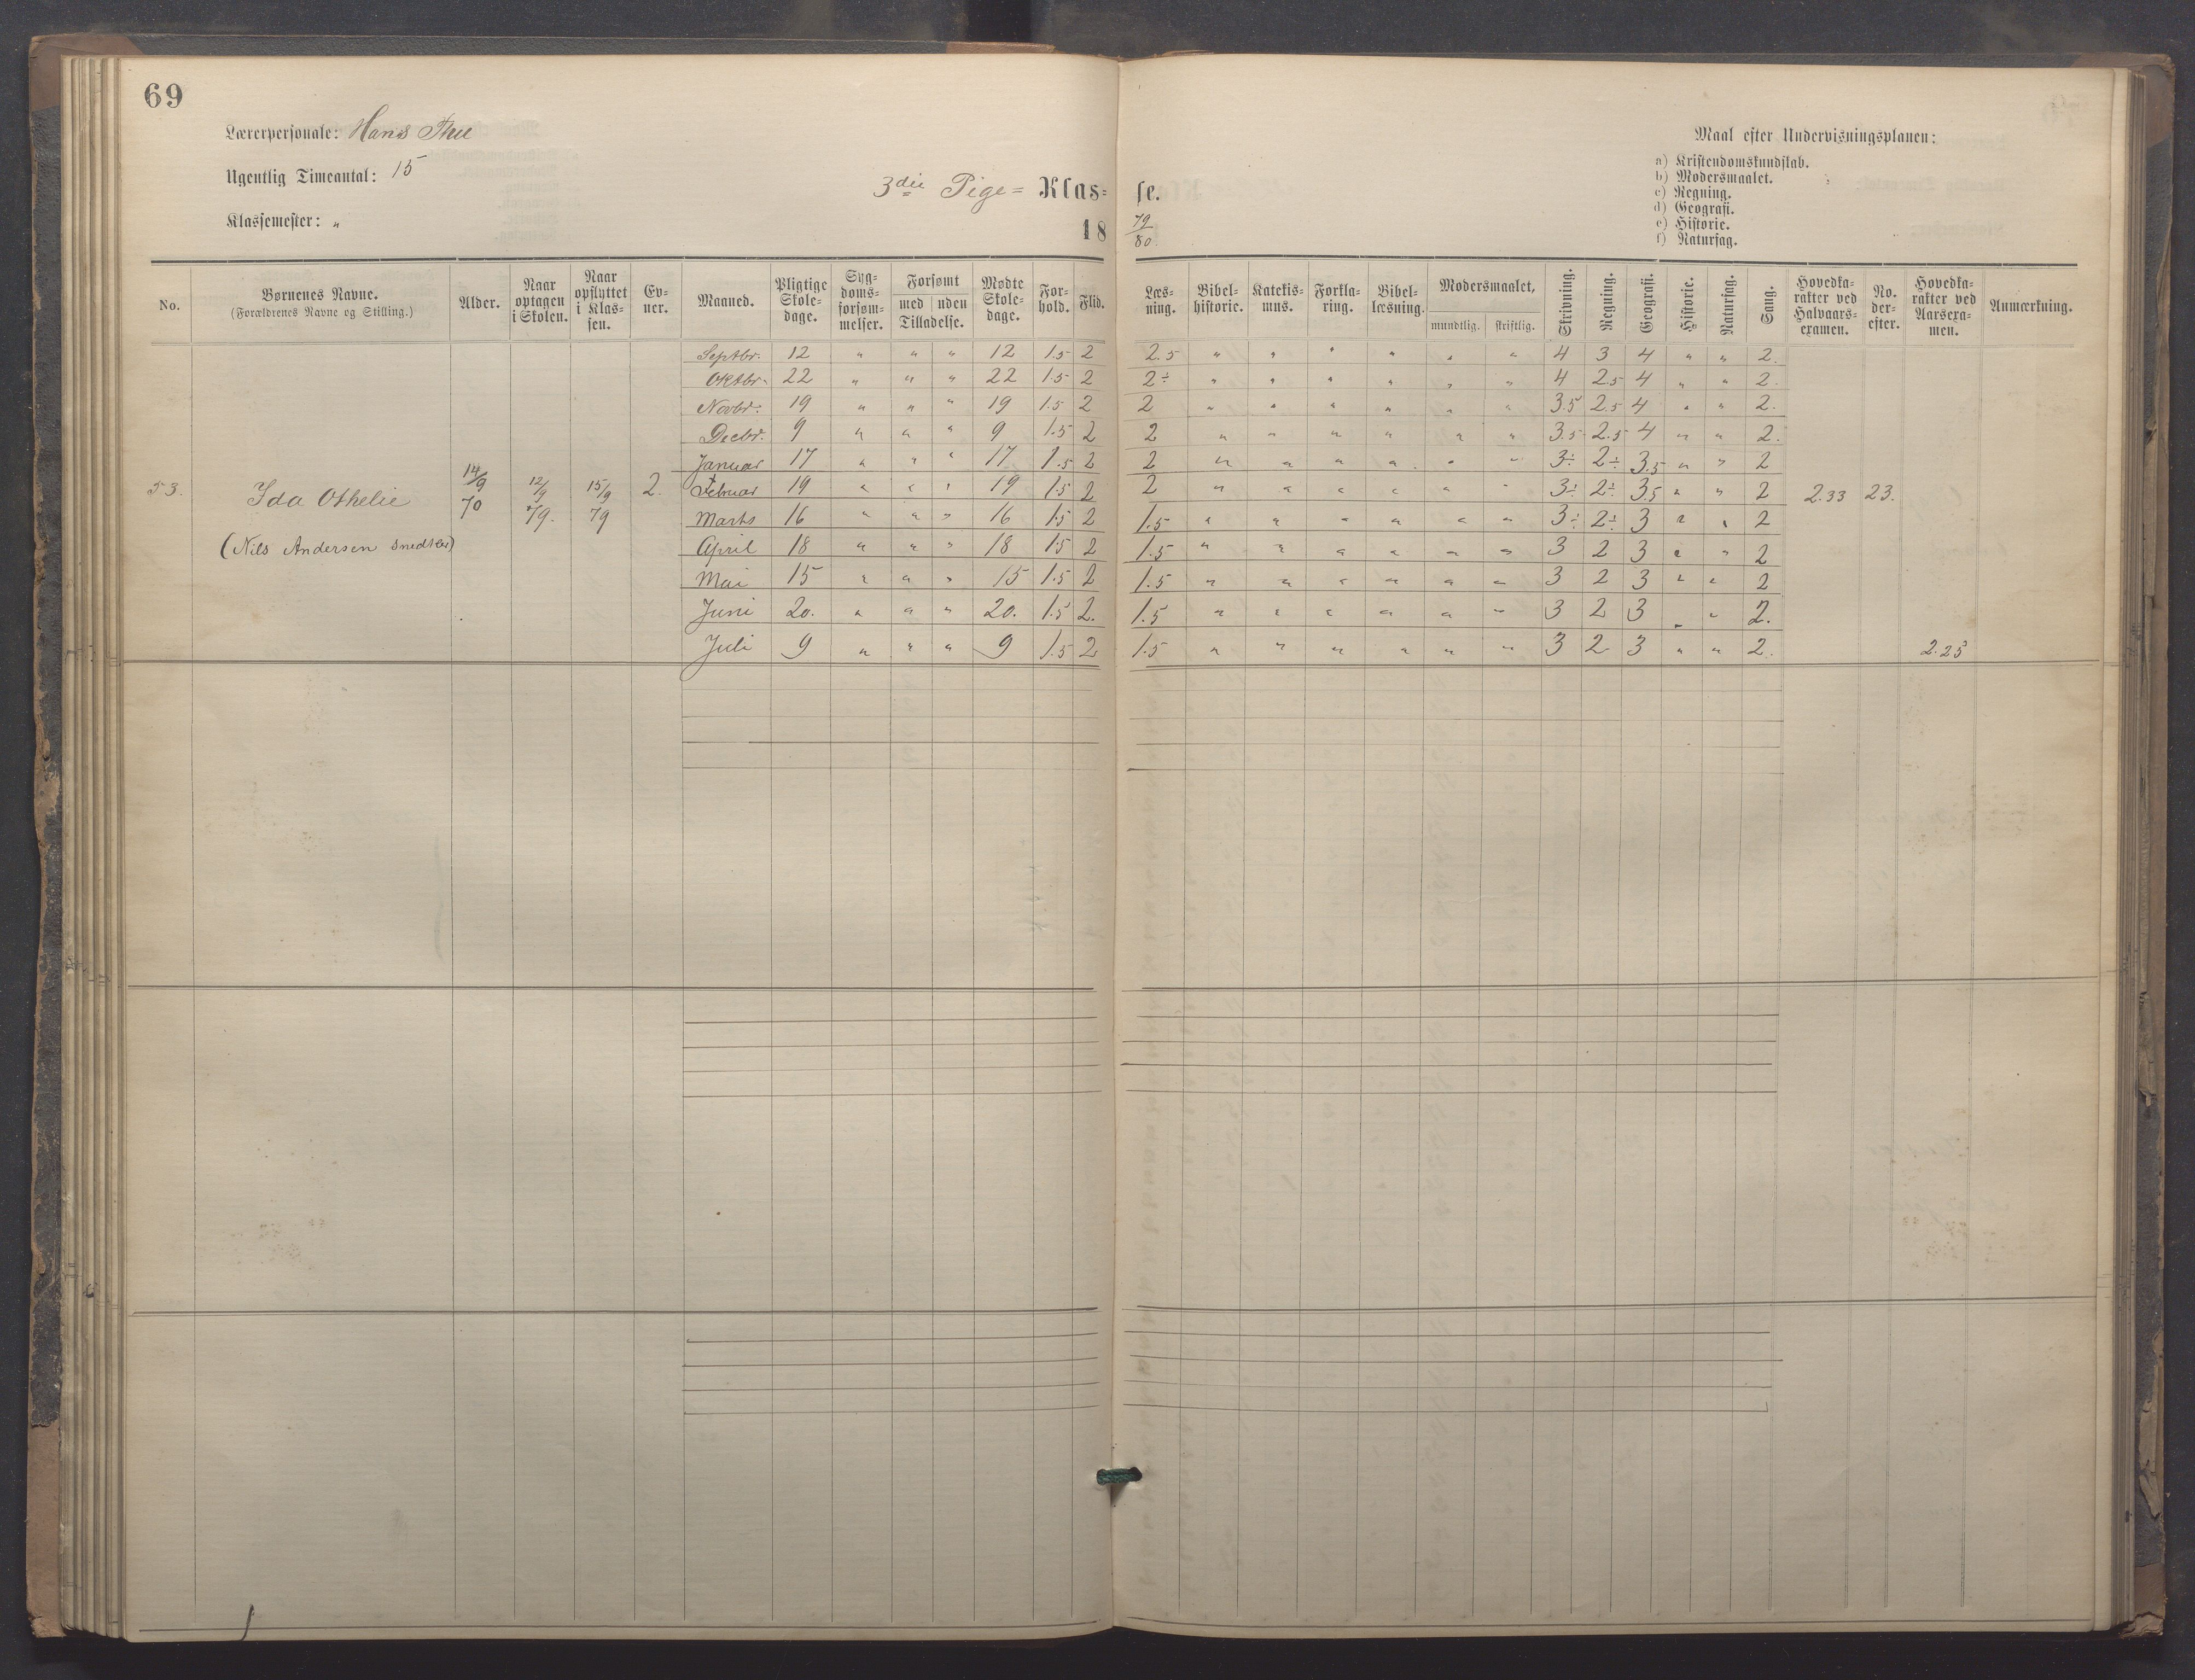 69
Lærerpersonale: Hans Thu
Ugentlig Timeantal: 15
Klassemester: "
3die Pige= Klas= se.
18 79/80
Maal efter Undervisningsplanen:
a) Kristendomskundskab.
b) Modersmaalet.
c) Regning.
d) Geografi.
e) Historie.
f) Naturfag.
No. Børnenes Navne. (Forældrenes Navne og Stilling.) Alder. Naar optagen i Skolen. Naar opflyttet i Klassen. Evner. Maaned. Pligtige Skoledage. Sygdomsforsømmelser. Forsømt med uden Tilladelse. Mødte Skoledage. Forhold. Flid. Læsning. Bibelhistorie. Katekismus. Forklaring. Bibellæsning. Modersmaalet, mundtlig. skriftlig. Skrivning. Regning. Geografi. Historie. Naturfag. Sang. Hovedkarakter ved Halvaarsexamen. No. derefter. Hovedkarakter ved Aarsexamen. Anmærkning.
Septbr. 12 " " " 12 1.5 2 2.5 " " " " " " 4 3 4 " " 2.
Oktbr. 22 " " " 22 1.5 2 2÷ " " " " " " 4 2.5 4 " " 2.
Novbr. 19 " " " 19 1.5 2 2 " " " " " " 3.5 2.5 4 " " 2.
Decbr. 9 " " " 9 1.5 2 2 " " " " " " 3.5 2.5 4 " " 2.
Januar 17 " " " 17 1.5 2 2 " " " " " " 3÷ 2÷ 3.5 " " 2
53. Ida Othelie 14/9 70 12/9 79. 15/9 79 2. Februar 19 " " " 19 1.5 2 2 " " " " " " 3÷ 2÷ 3.5 " " 2 2.33 23.
Marts 16 " " " 16 1.5 2 1.5 " " " " " " 3÷ 2÷ 3 " " 2
(Nils Andersen Snedker) April 18 " " " 18 1.5 2 1.5 " " " " " " 3 2 3 " " 2
Mai 15 " " " 15 1.5 2 1.5 " " " " " " 3 2 3 " " 2
Juni 20. " " " 20. 1.5 2. 1.5 " " " " " " 3 2 3 " " 2.
Juli 9 " " " 9 1.5 2 1.5 " " " " " " 3 2 3 " " 2. 2.25